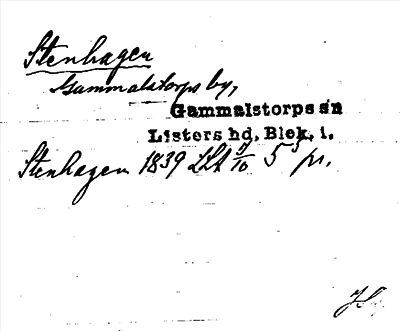 Stenhagen
Gammalstorps by,
Gammalstorps sn
Listers hd, Blek. l.
Stenhagen 1839 LSA 5 pr.